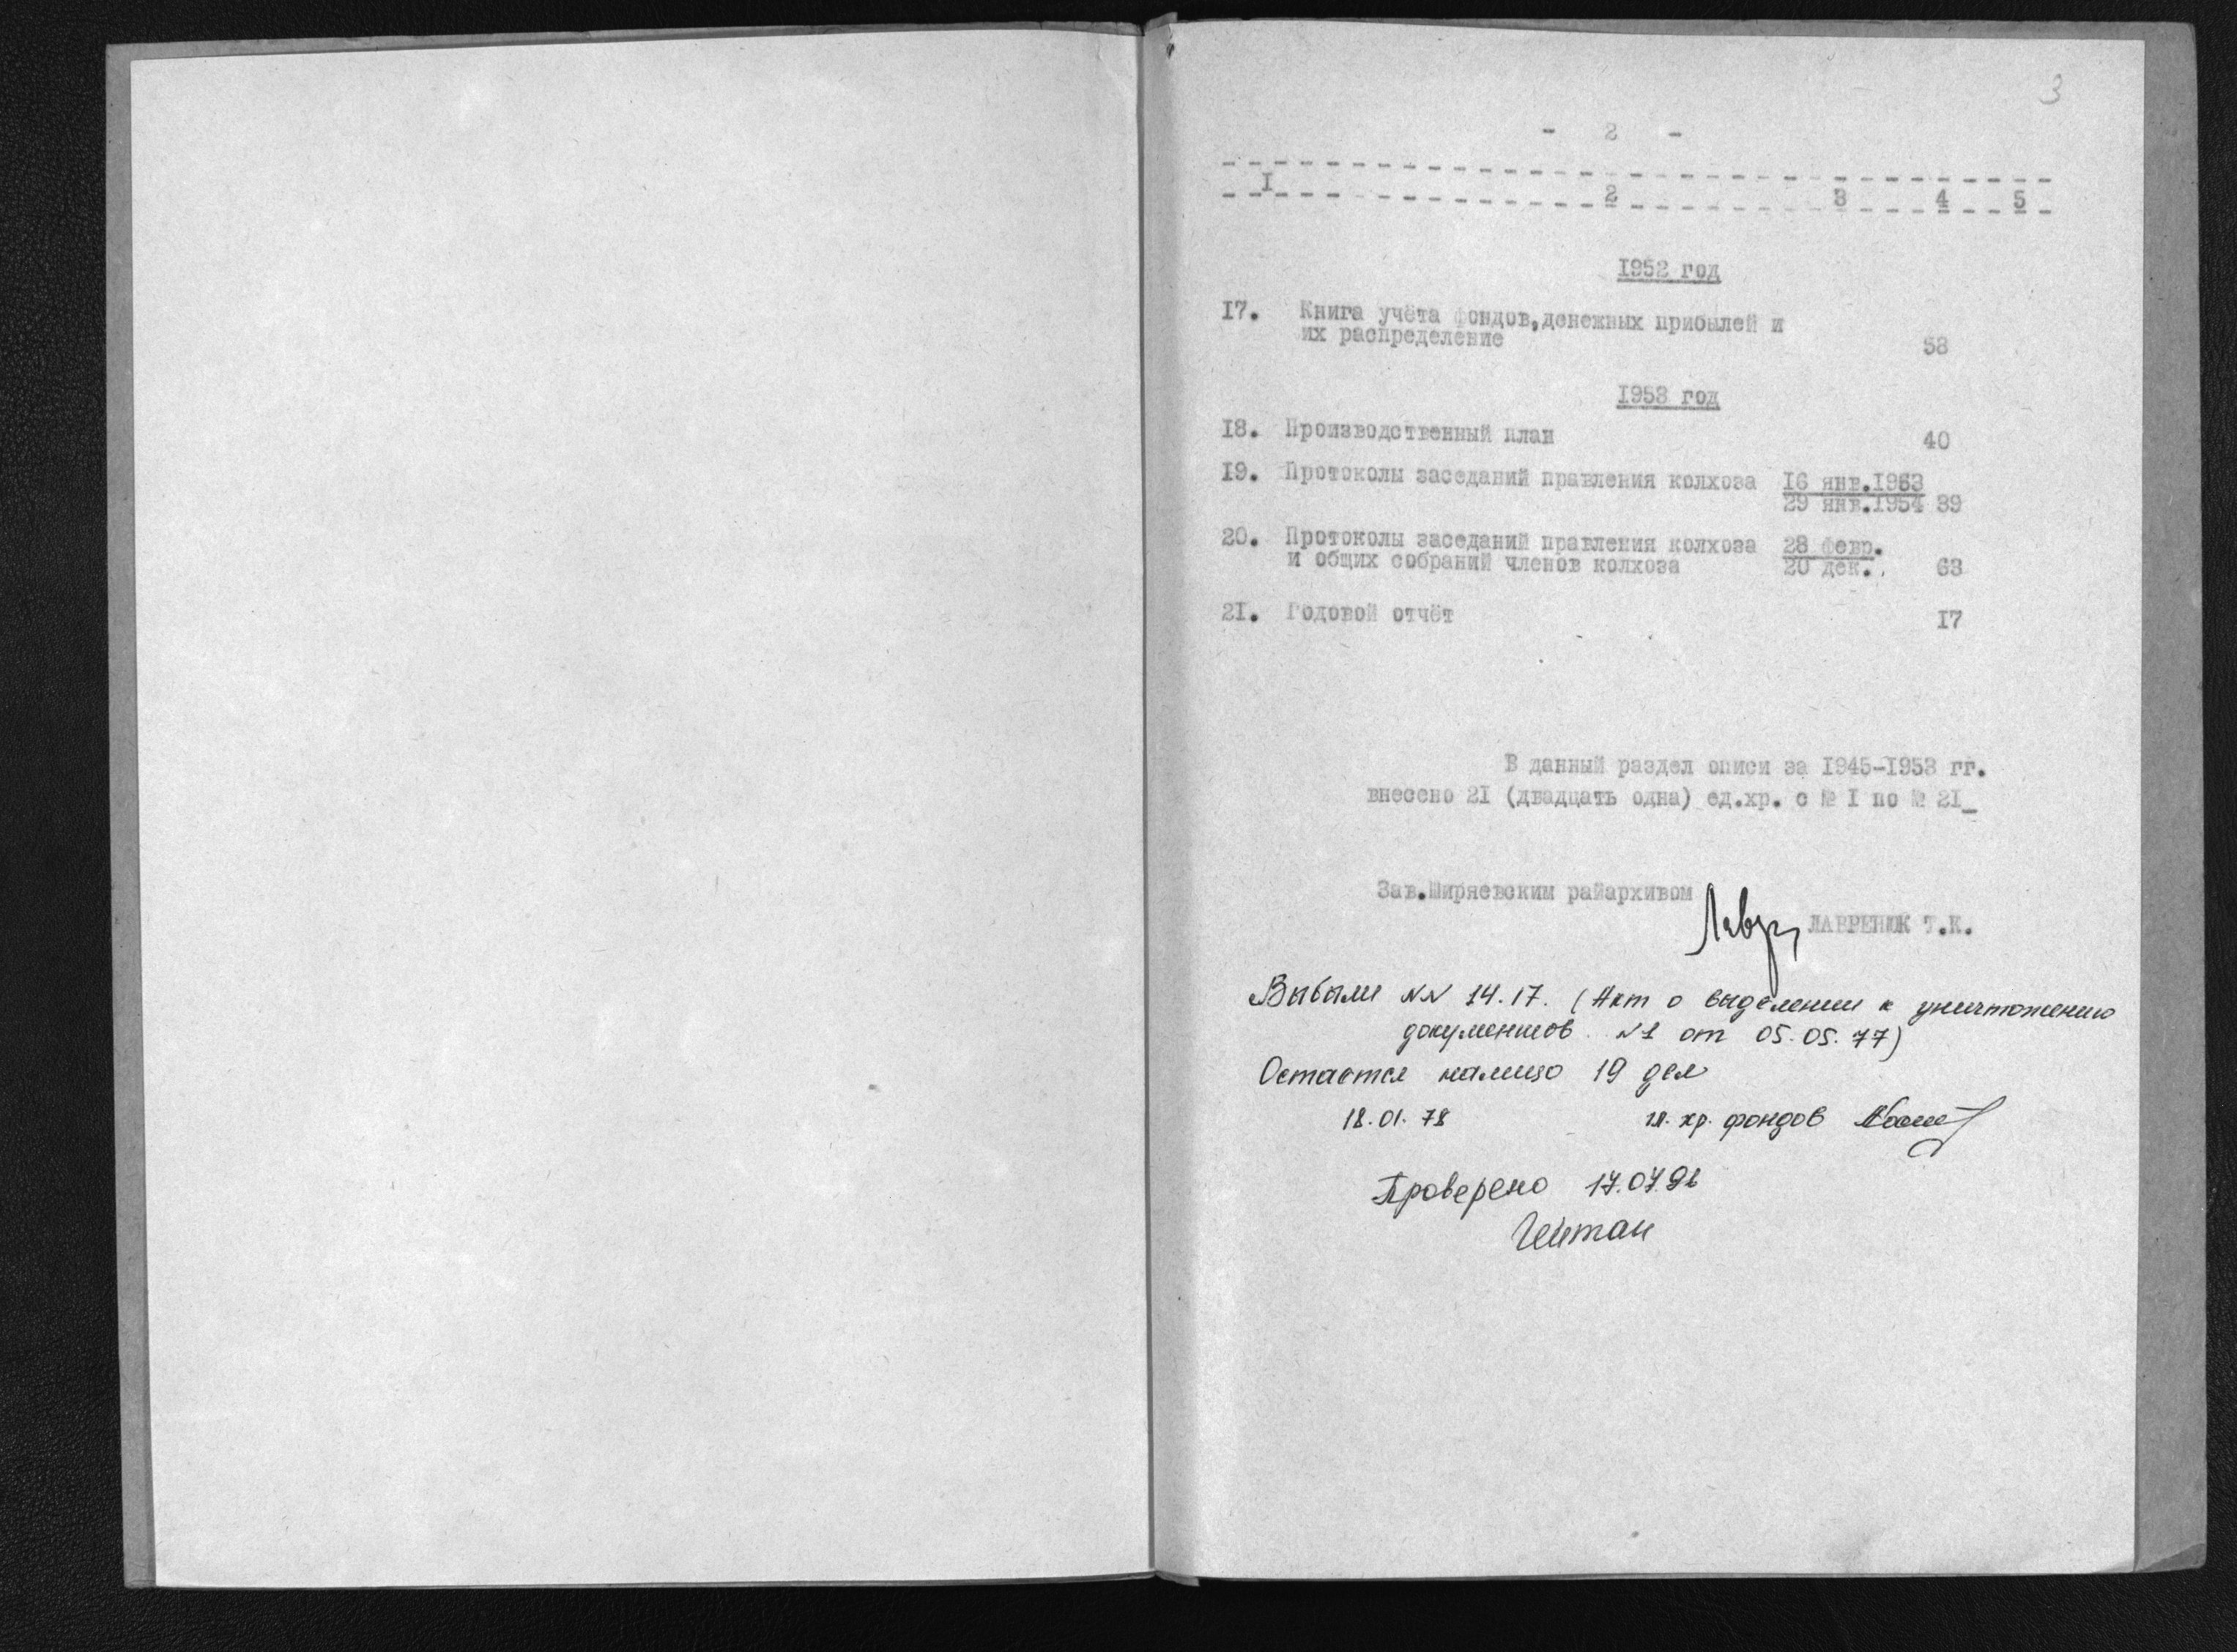 3
- 2 -
I 2 3 4 5
1952 год
17. Книга учёта фондов,денежных прибылей и
их распределение 58
1953 год
18. Производственный план 40
19. Протоколы заседаний правления колхоза 16 янв.1953
29 янв.1954 39
20. Протоколы заседаний правления колхоза 28 февр.
и общих собраний членов колхоза 20 дек. 63
21. Годовой отчёт 17
В данный раздел описи за 1945-1953 гг.
внесено 21 (двадцать одна) ед.хр. с № I по № 21_
Зав.Ширяевским райархивом
ЛАВРЕНЮК Т.К.
Выбыли NN 14.17. (Акт о выделении к уничтожению
документов N1 от 05.05.77)
Остается налицо 19 дел
18.01.78 хр. фондов
Проверено 17.07.96